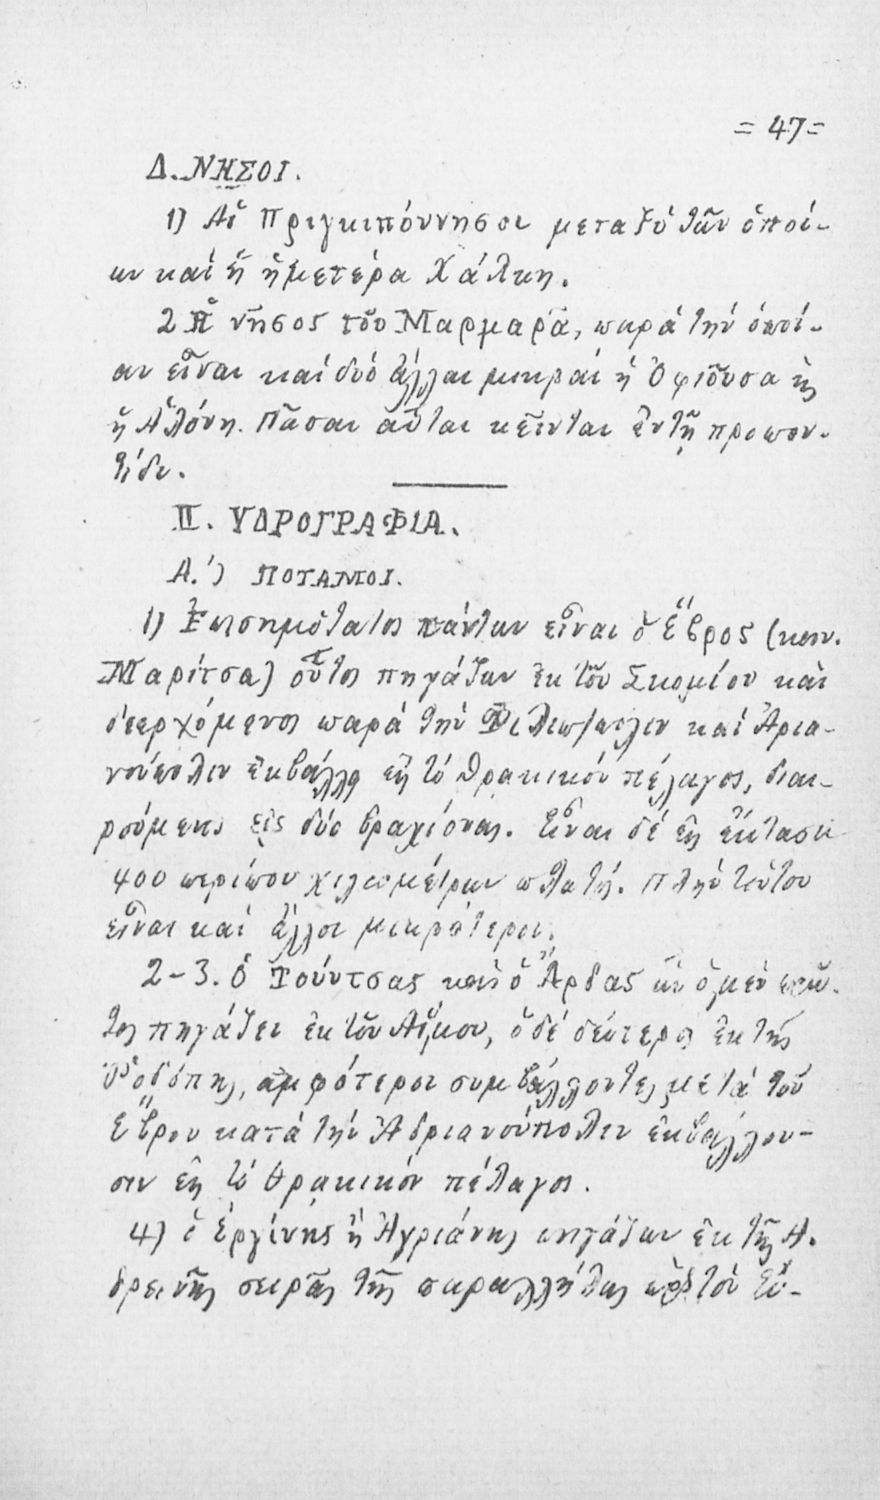 = 47 =
Δ. ΝΗΣΟΙ.
1) Αἱ Πριγκιπόννησοι μεταξύ τῶν ὁποί-
ων καί ἡ ἡμετέρα Χάλκη.
2 Ἡ νῆσος τοῦ Μαρμαρᾶ, παρά τήν ὁποί-
αν εἶναι καί δυό ἄλλαι μικραί ἡ Ὀφιοῦσα κ
ἡ Ἁλόνη. Πᾶσαι αὗται κεῖνται ἐν τῇ προπον-
τίδι.
II. ΥΔΡΟΓΡΑΦΙΑ.
Α.') ΠΟΤΑΜΟΙ.
1) Ἐπισημότατος πάντων εἶναι ὁ Ἕβρος (κοιν.
Μαρίτσα) οὗτος πηγάζων ἐκ τοῦ Σκομίου καὶ
διερχόμενος παρά τήν Φιλιππόπολιν καί Ἀρια-
νούπολιν ἐκβάλλει εἰς τό Θρακικόν πέλαγος, διαι-
ρούμενος εἰς δύο βραχίονας. Εἶναι δέ εἰς ἔκτασιν
400 περίπου χιλιομέτρων πλωτή. Πλήν τούτου
εἶναι καί ἄλλοι μικρότεροι.
2-3. Ὁ Τούντσας καὶ ὁ Ἄρδας ὧν ὁ μέν πρῶ-
τος πηγάζει ἐκ τοῦ Αἵμου, ὁ δέ δεύτερος ἐκ τῆς
Ῥοδόπης, ἀμφότεροι συμβάλλοντες μετά τοῦ
Ἕβρου κατά τήν Ἀδριανούπολιν ἐκβάλλου-
σιν εἰς τό Θρακικόν πέλαγος.
4) ὁ Ἐργίνης ἤ Ἀγριάνης πηγάζων ἐκ τῆς Α.
ὀρεινῆς σειρᾶς τῆς παραλλήλας πρὸς τόν Εὔ-